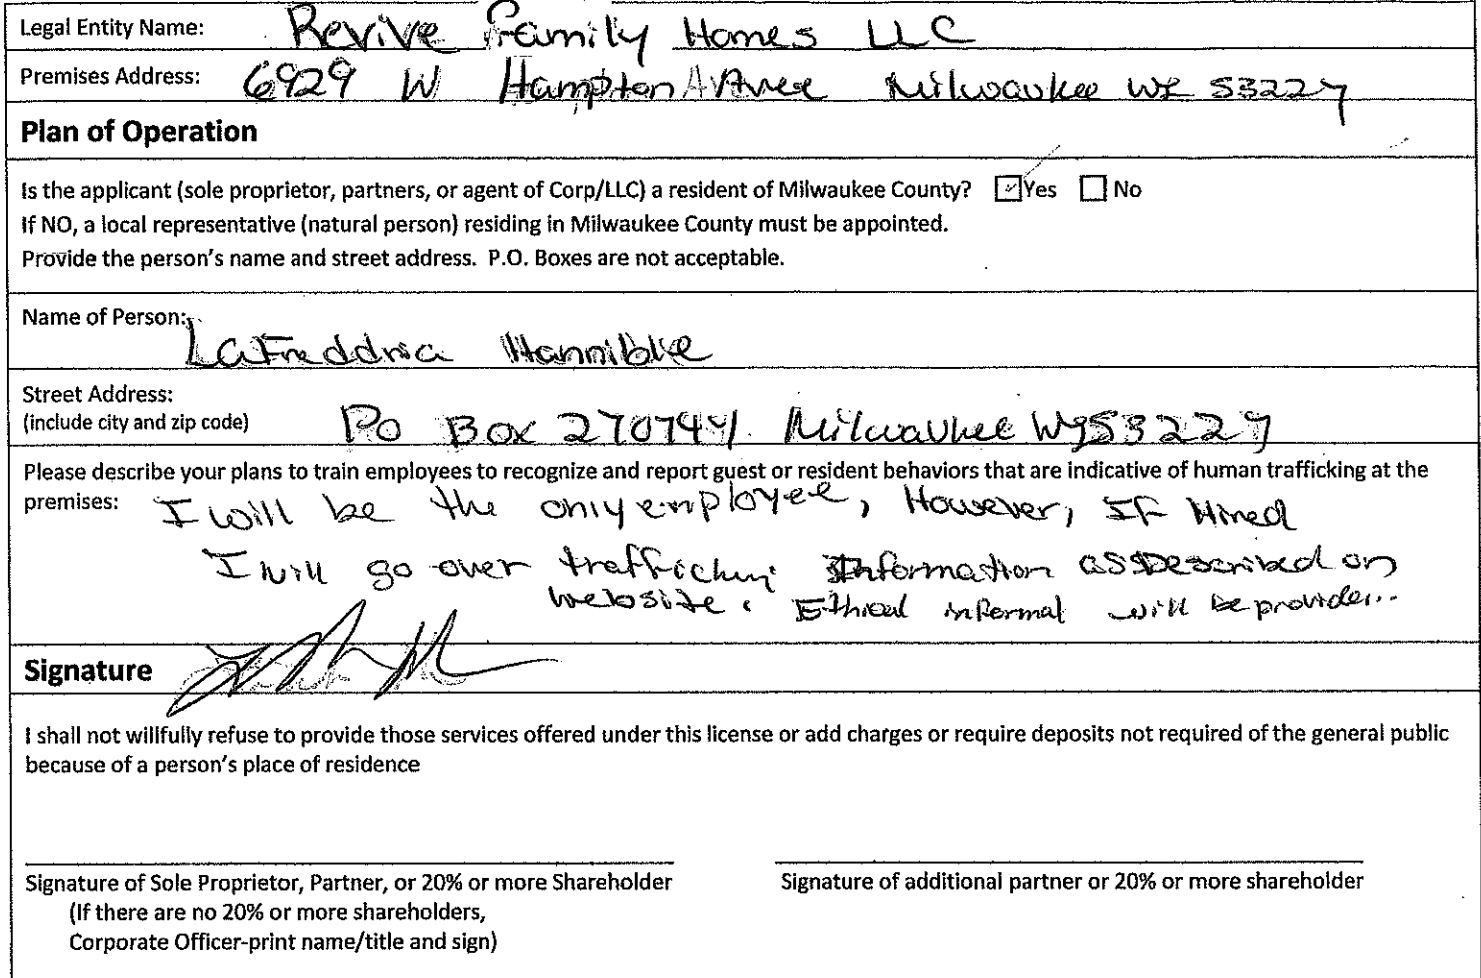 Legal Entity Name: Revive Family Homes LLC
Premises Address: 6929 W Hampton Avee Milwaukee WI 53227
Plan of Operation
Is the applicant (sole proprietor, partners, or agent of Corp/LLC) a resident of Milwaukee County? ☑ Yes ☐ No
If NO, a local representative (natural person) residing in Milwaukee County must be appointed.
Provide the person's name and street address. P.O. Boxes are not acceptable.
Name of Person:
LaFreddria Hannible
Street Address:
(include city and zip code) Po Box 270744 Milwaukee WI 53227
Please describe your plans to train employees to recognize and report guest or resident behaviors that are indicative of human trafficking at the
premises: I will be the only employee, However, If Hired
I will go over information as Described on
website. Ethical informal will be provider...
Signature
I shall not willfully refuse to provide those services offered under this license or add charges or require deposits not required of the general public
because of a person's place of residence
Signature of Sole Proprietor, Partner, or 20% or more Shareholder Signature of additional partner or 20% or more shareholder
(If there are no 20% or more shareholders,
Corporate Officer-print name/title and sign)